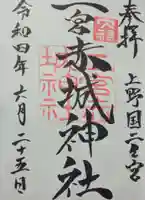 奉拝
上野国二宮
二宮赤城神社
令和四年六月二十五日